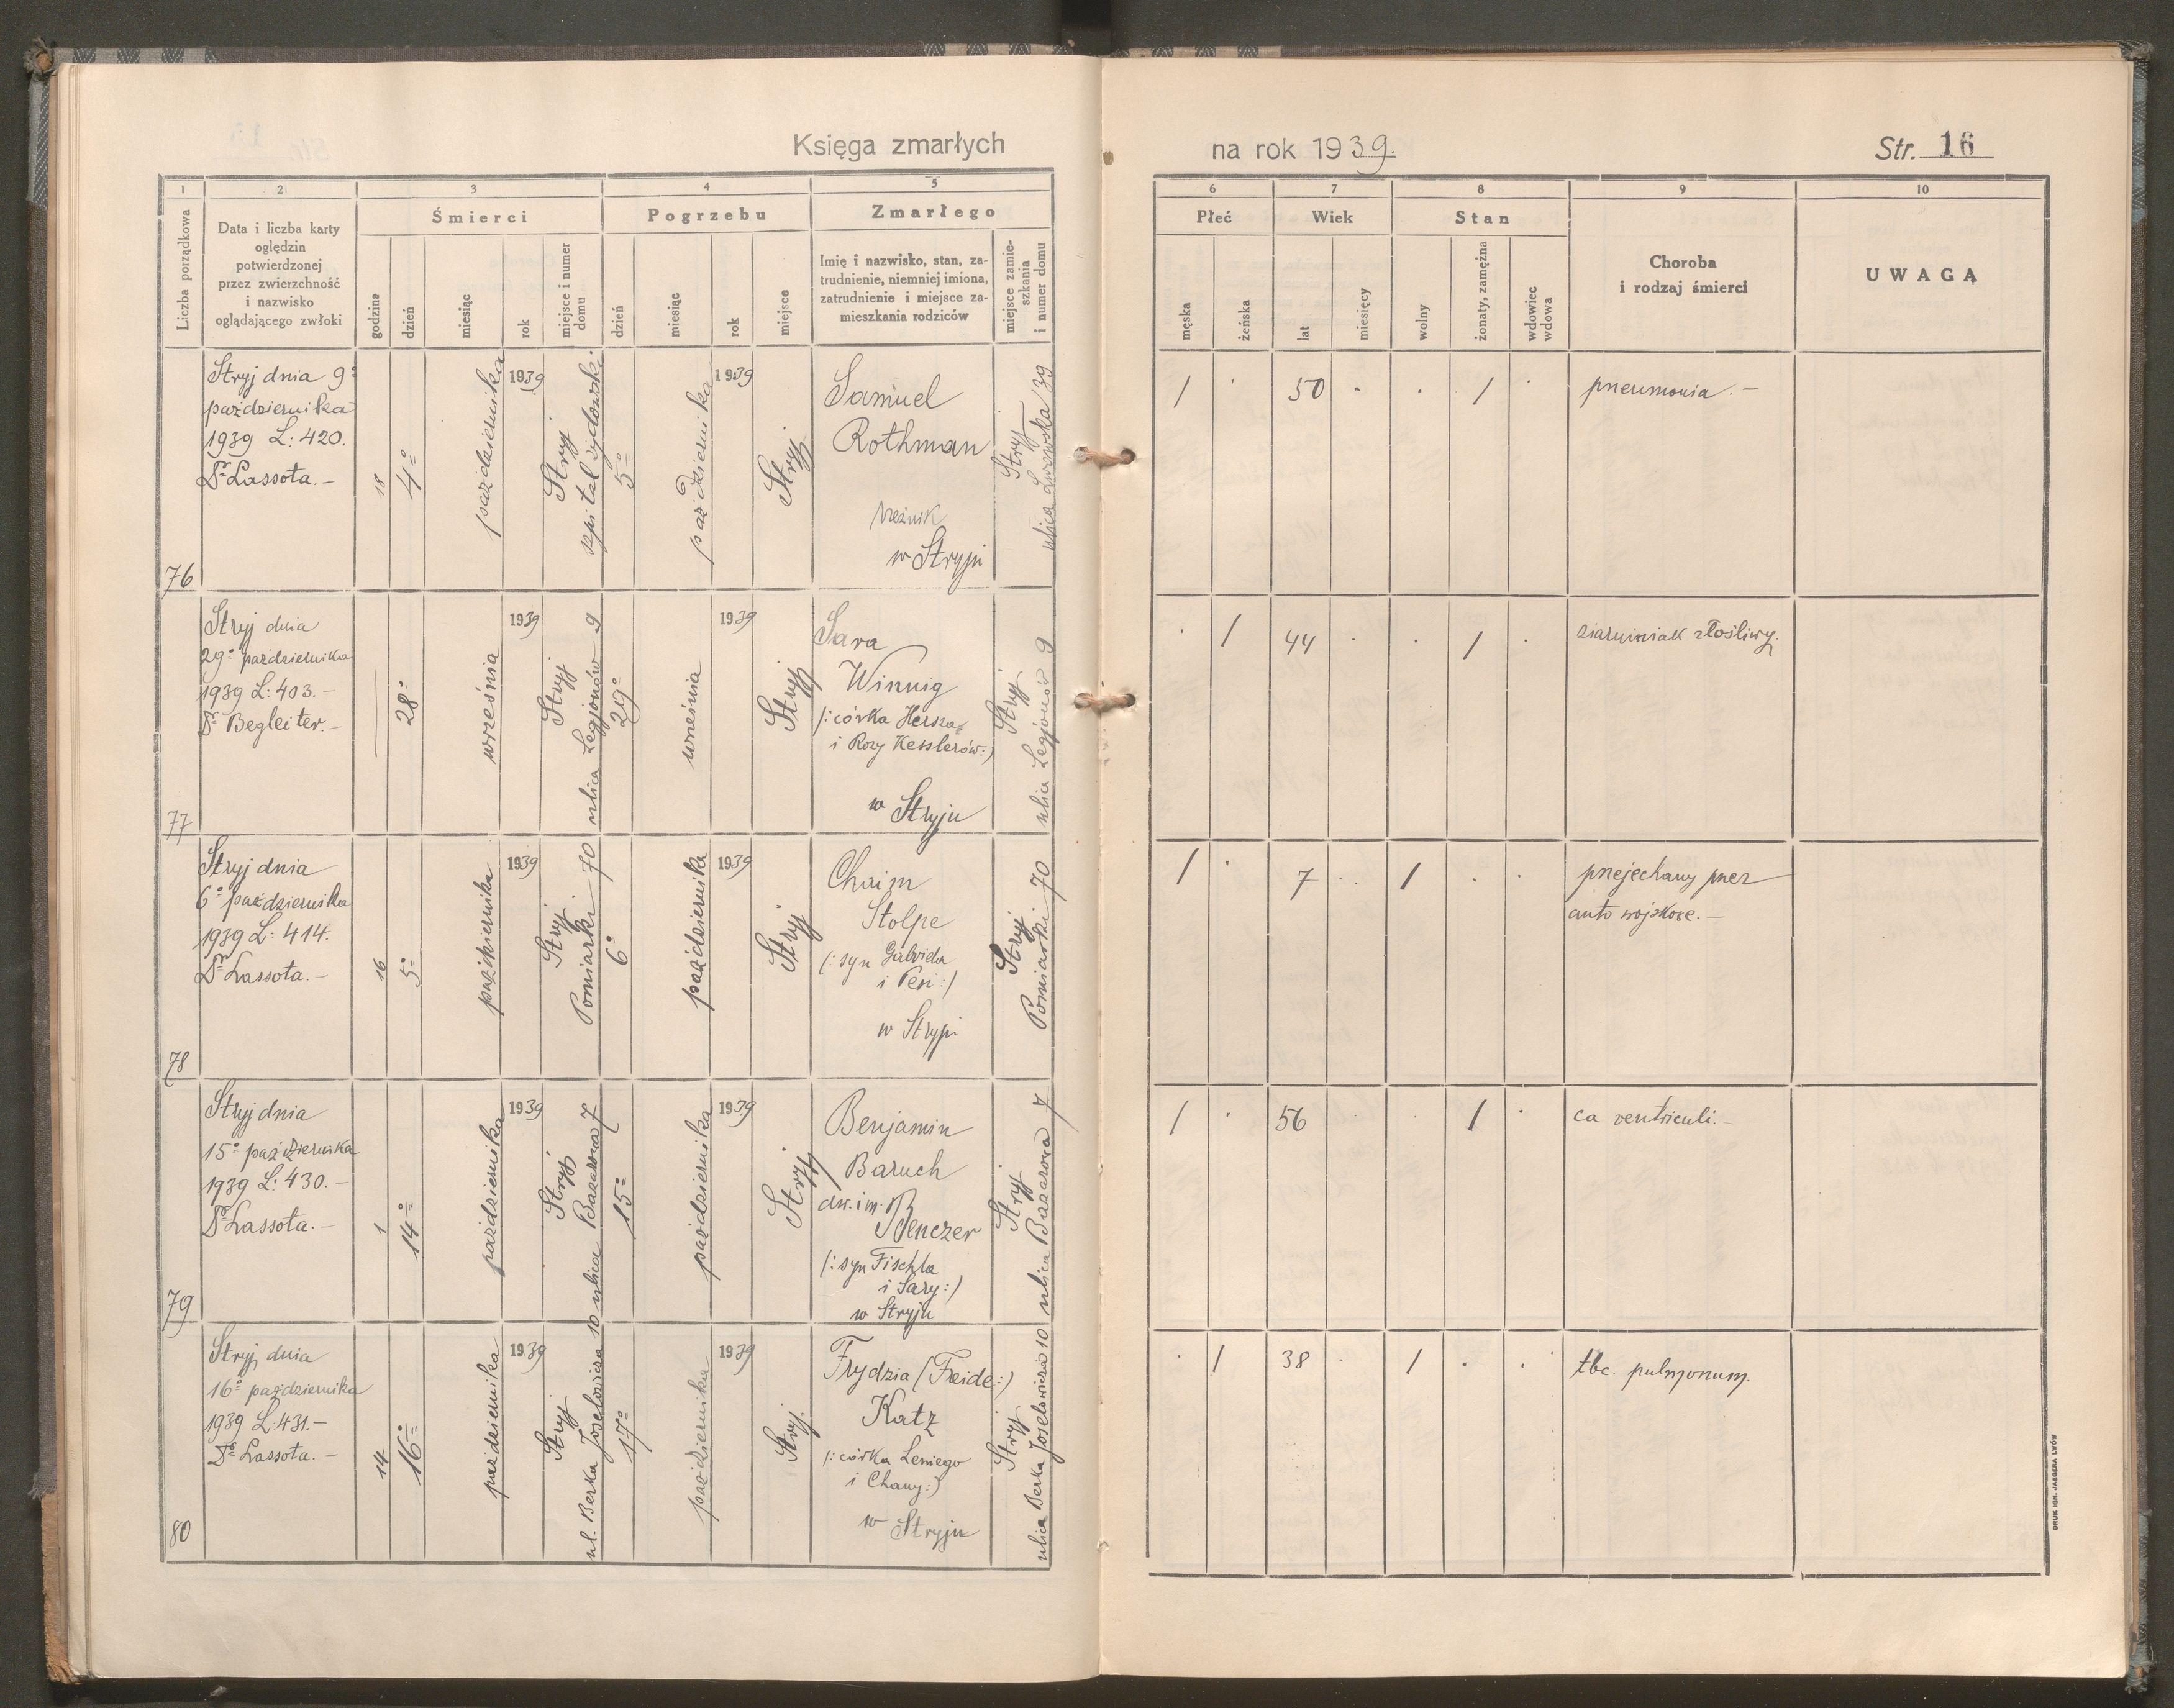 Księga zmarłych
na rok 1939.
Str. 16
1 2 3 4 5 6 7 8 9 10
Liczba porządkowa
Data i liczba karty
oględzin
potwierdzonej
przez zwierzchność
i nazwisko
oglądającego zwłoki
Śmierci
godzina
dzień
miesiąc
rok
miejsce i numer
domu
Pogrzebu
dzień
miesiąc
rok
miejsce
Zmarłego
Imię i nazwisko, stan, za-
trudnienie, niemniej imiona,
zatrudnienie i miejsce za-
mieszkania rodziców
miejsce zamie-
szkania
i numer domu
Płeć
męska
żeńska
Wiek
lat
miesięcy
Stan
wolny
żonaty, zamężna
wdowiec
wdowa
Choroba
i rodzaj śmierci
UWAGA
76
Stryj dnia 9º
października
1939 L: 420.
Dr Lassota.-
18
4º
października
1939
Stryj
szpital żydowski.
5º
października
1939
Stryj
Samuel
Rothman
rzeźnik
w Stryju
Stryj
ulica Lwowska 39
1 . 50 . . 1 .
pneumonia.-
77
Stryj dnia
29º października
1939 L: 403.-
Dr Begleiter.-
28º
września
1939
Stryj
ulica Legjonów 9
29º
września
1939
Stryj
Sara
Winnig
/:córka Hersza
i Rozy Kesslerów:)
w Stryju
Stryj
ulica Legjonów 9
. 1 44 . . 1 .
ziarniniak złośliwy.
78
Stryj dnia
6º października
1939 L: 414.
Dr Lassota.-
16
5º
października
1939
Stryj
Pomiarki 70
6º
października
1939
Stryj
Chaim
Stolpe
(:syn
i Pesi:)
w Stryju
Stryj
Pomiarki 70
1 . 7 . 1 . .
przejechany przez
auto wojskowe.-
79
Stryj dnia
15º października
1939 L: 430.-
Dr Lassota.-
1
14º
października
1939
Stryj
ulica Bazarowa 7
15º
października
1939
Stryj
Benjamin
Baruch
dw. im.
Benczer
(:syn Fischla
i Sary:)
w Stryju
Stryj
ulica Bazarowa 7
1 . 56 . . 1 .
ca ventriculi.-
80
Stryj dnia
16º października
1939 L: 431.-
Dr Lassota.-
14
16º
października
1939
Stryj
ul. Berka Joselowicza 10
17º
października
1939
Stryj.
Frydzia (Freide:)
Katz
(:córka
i Chany:)
w Stryju
Stryj
ulica Berka Joselowicza 10
. 1 38 . 1 . .
tbc. pulmonum.
DRUK IGN. JAEGERA LWÓW